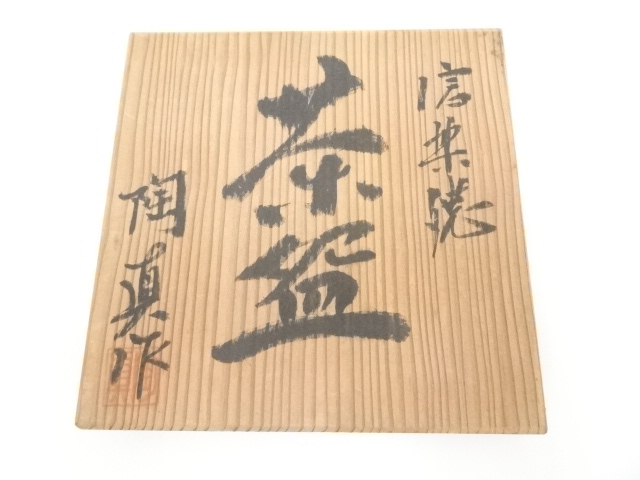 信楽焼
茶盌
陶真作